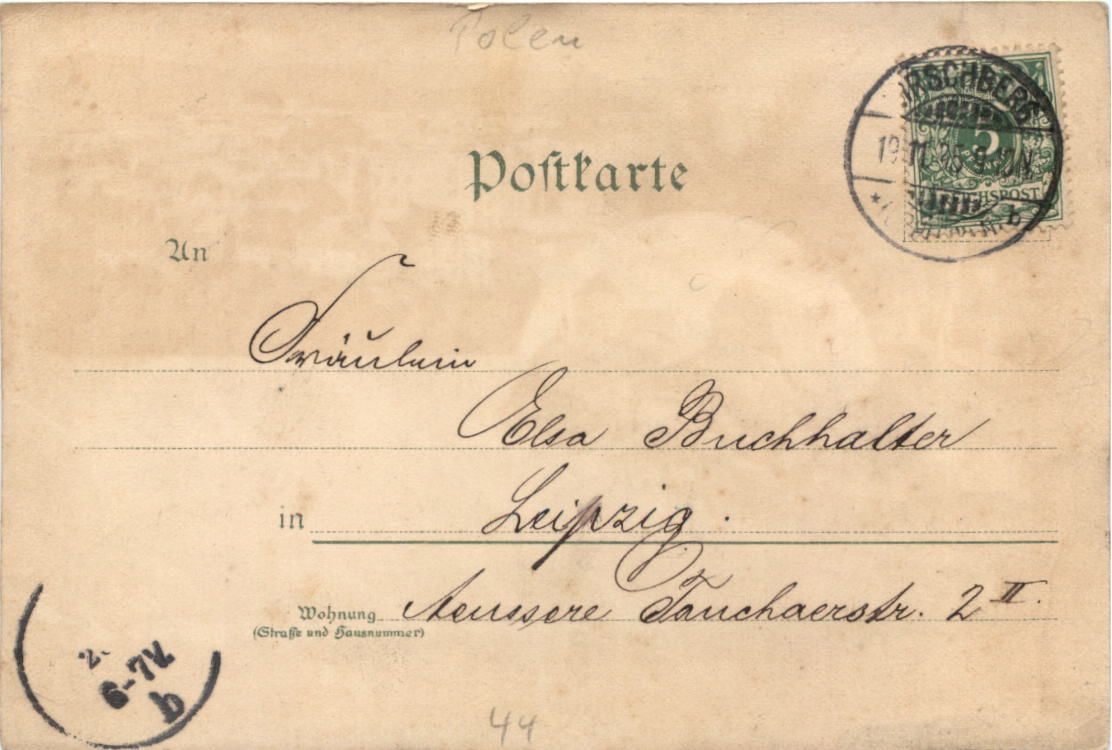 Polen
Postkarte
HIRSCHBERG
19.11.95 9-10N.
b
5
REICHSPOST
An
Fräulein
Elsa Buchhalter
in Leipzig.
Wohnung Aeussere Tauchaerstr. 2 II.
(Straße und Hausnummer)
6-7V.
b
44